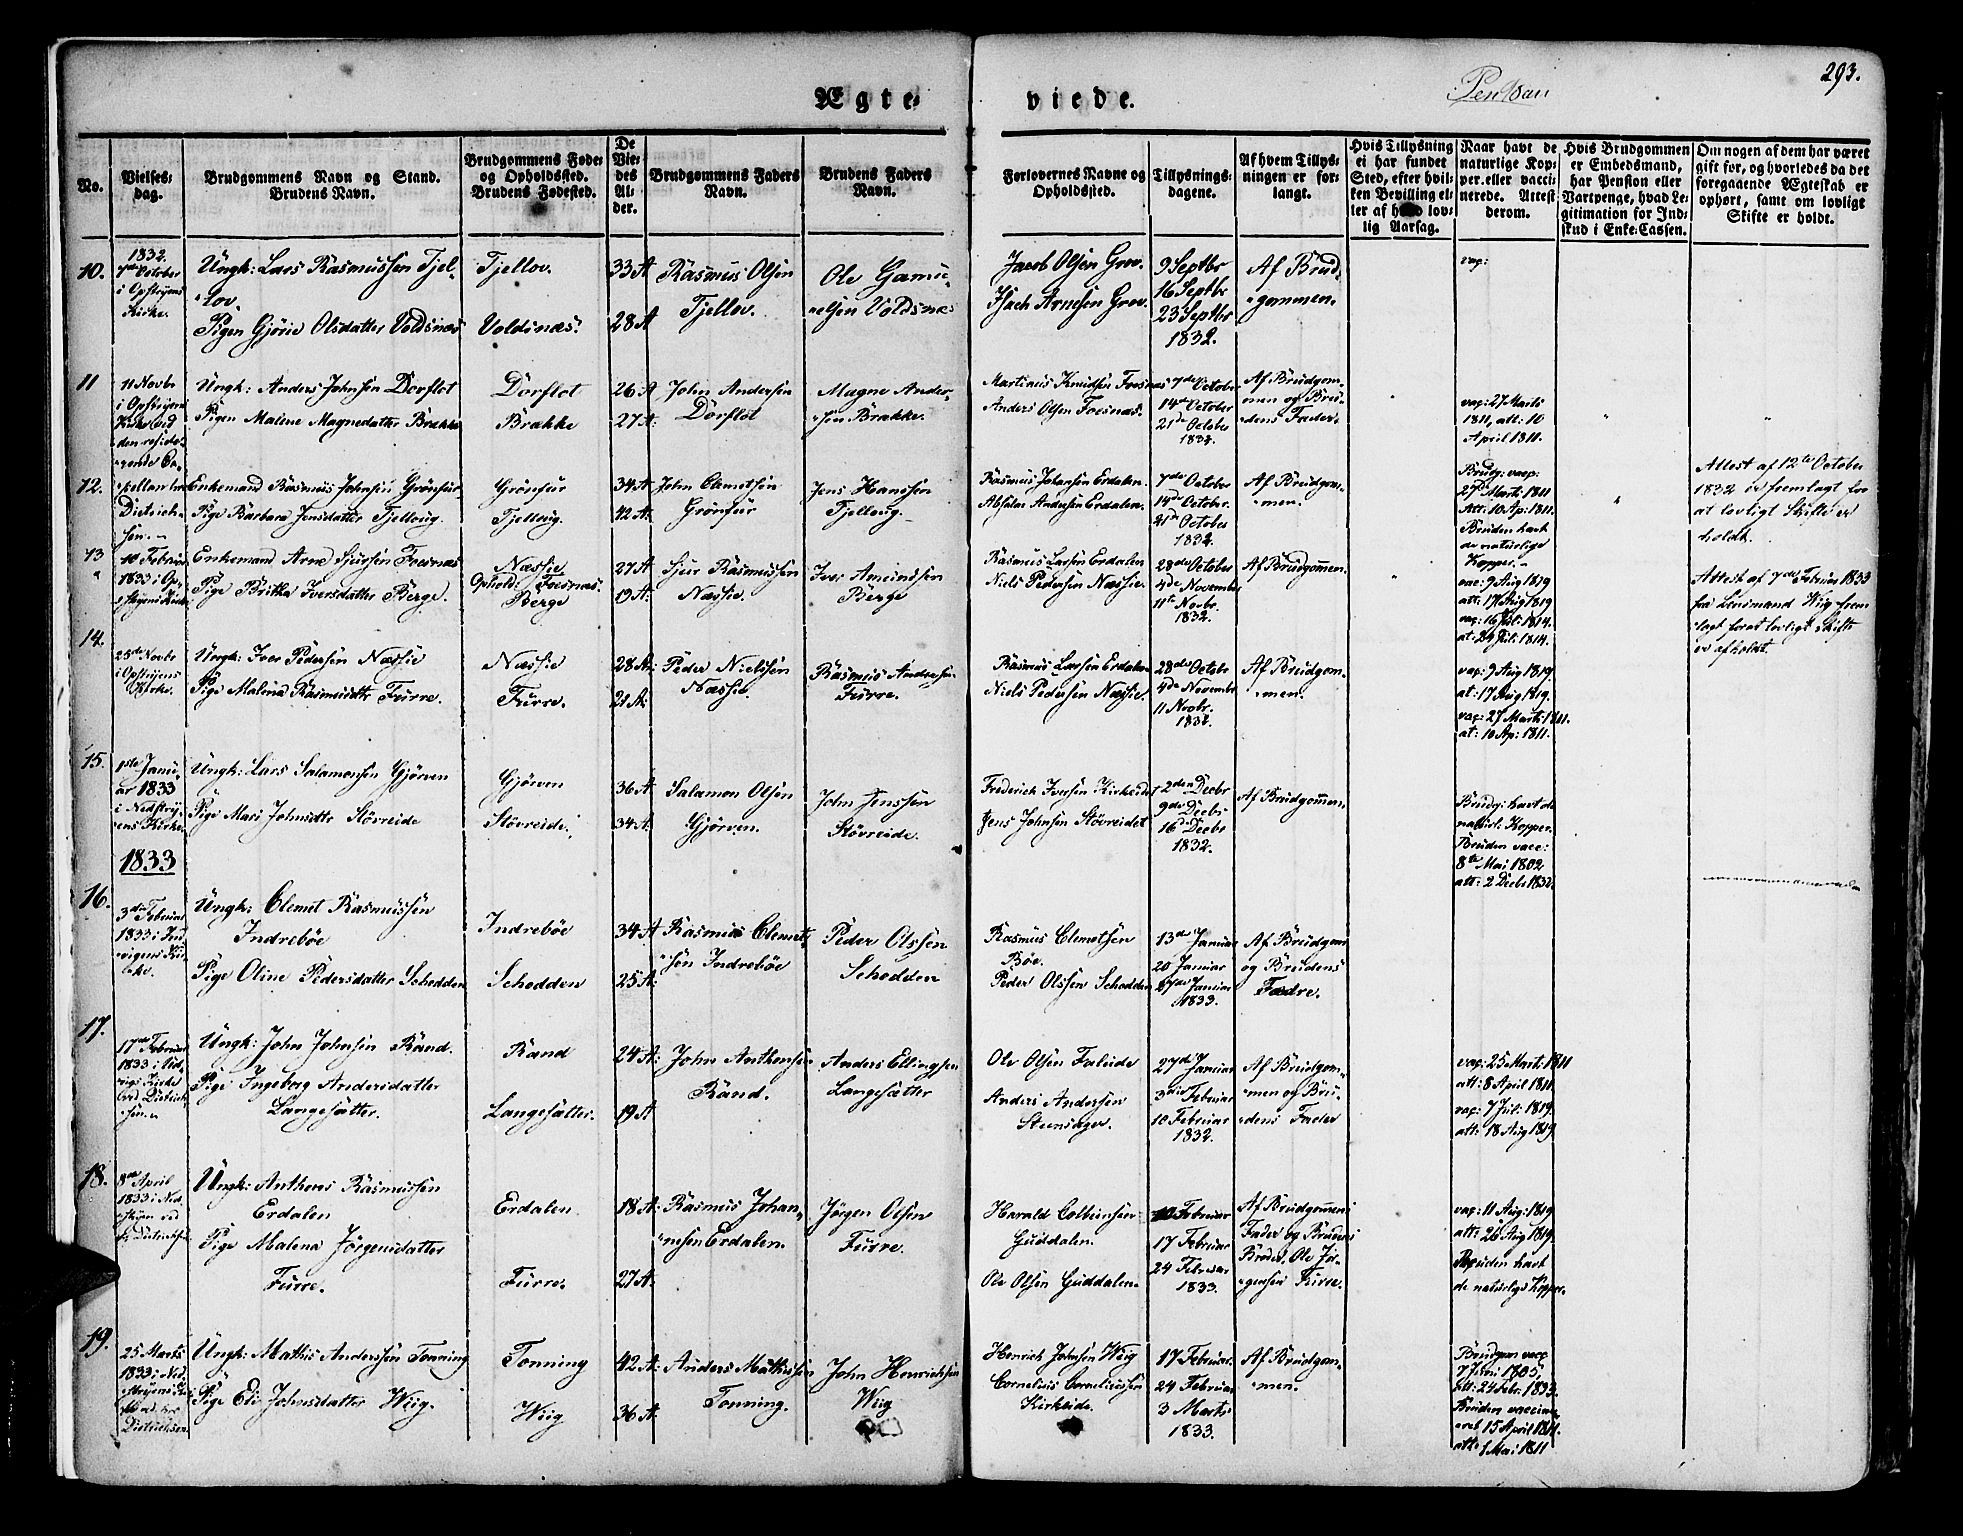 293.
Ægte-
viede.
No.
Vielses-
dag.
Brudgommens Navn og Stand.
Brudens Navn.
Brudgommens Føde-
og Opholdssted.
Brudens Fødested.
De
Vie-
des
Al-
der.
Brudgommens Faders
Navn.
Brudens Faders
Navn.
Forlovernes Navne og
Opholdssted.
Tillysnings-
dagene.
Af hvem Tillys-
ningen er for-
langt.
Hvis Tillysning
ei har fundet
Sted, efter hvil-
ken Bevilling el-
ler af hvad lov-
lig Aarsag.
Naar havt de
naturlige Kop-
per eller vacci-
nerede. Attest
derom.
Hvis Brudgommen
er Embedsmand,
har Pension eller
Vartpenge, hvad Le-
gitimation for Ind-
skud i Enke-Cassen.
Om nogen af dem har været
gift før, og hvorledes da det
foregaaende Ægteskab er
ophørt, samt om lovligt
Skifte er holdt.
10.
1832.
7de October
i Opstryens
Kirke.
Ungk: Lars Rasmussen Tjel-
lov.
Pigen Gjørie Olsdatter Voldsnæs
Tjellov.
Voldsnæs.
33 A
28 A
Rasmus Olsen
Tjellov.
Ole Gamu-
elsen Voldsnæs
Jacob Olsen Grov.
Isach Arnesen Grov.
9 Septbr
16 Septbr
23 Septbr
1832.
Af Brud-
gommen.
vac:
11
11 Novbr
i Opstryens
Kirke ved
den reside-
rende Ca-
Ungk: Anders Johnsen Dorflot
Pigen Malene Magnedatter Brække
Dorflot
Brække
26 A
27 A:
John Andersen
Dorflot
Magne Ander-
sen Brække.
Martinus Knudsen Fosnæs
Anders Olsen Fosnæs.
7de October
14de October
21de October
1832.
Af Brudgom-
men og Bru-
dens Fader.
vac: 27 Marts
1811, att: 10
April 1811.
12.
pellan Hr
Dietrich-
sen.
Enkemand Rasmus Johnsen Grønfur
Pige Barbara Jensdatter Tjelloug.
Grønfur
Tjelloug.
34 A
42 A:
John Clemetsen
Grønfur
Jens Hanssen
Tjelloug.
Rasmus Johansen Erdalen.
Absalon Andersen Erdalen.
7de October
14de October.
21de October
1832.
Af Brudgom-
men.
Brudg: vacc:
27 Marts 1811
Att: 10 Ap: 1811.
Bruden havt
de naturlige
Kopper.
Attest af 12te October
1832 er fremlagt for
at lovligt Skifte er
holdt.
13
10 Februar
1833 i Op-
stryens Kirke
Enkemand Arne Sjursen Fosnæs
Pige Britha Iversdatter Berge.
Næssie
Ophold: Fosnæs.
Berge
27 A
19 A:
Sjur Rasmussen
Næssie.
Iver Amundsen
Berge
Rasmus Larsen Erdalen
Niels Pedersen Næssie.
28de October
4de November
11te Novbr.
1832.
Af Brudgommen.
vac: 9 Aug 1819
att: 17 Aug 1819
vac: 16 Jul: 1814.
at: 24 Jul: 1814.
Attest af 7de Februar 1833
fra Lensmand Wiig frem-
lagt for at lovligt Skifte
er afholdt.
14.
25de Novbr
i Opstryens
Kirke.
Ungk: Iver Pedersen Næssie
Pige Malena Rasmusdtr Furre.
Næssie
Furre.
28 A:
21 A:
Peder Nielssen
Næssie.
Rasmus Andersen
Furre.
Rasmus Larsen Erdalen
Niels Pedersen Næssie.
28de Octobr
4de November
11 Novbr.
1832.
Af Brudgom-
men.
vac: 9 Aug 1819.
at: 17 Aug 1819.
vac: 27 Marts 1811.
at: 10 Ap: 1811.
15.
1ste Janu-
ar 1833
i Nedstry-
ens Kirke.
Ungk: Lars Salamonsen Gjørven
Pige Mari Johnsdtr Støvreide
Gjørven
Støvreide.
36 A
34 A
Salamon Olsen
Gjørven.
John Jenssen
Støvreide.
Frederich Iversen Kirkeide
Jens Johnsen Støvreidet
2den Decbr
9de Decbr
16de Decbr
1832.
Af Brudgommen
Brudg: havt de
naturl: Kopper.
Bruden vacc:
8de Mai 1802
att: 2 Decbr 1832.
1833
16.
3die Februar
1833 i Ind-
vigens Kir-
ke.
Ungk: Clemet Rasmussen
Indrebøe
Pige Oline Pedersdatter Schedden
Indrebøe
Schodden
34 A
25 A:
Rasmus Clemet-
sen Indrebøe
Peder Olssen
Schodden
Rasmus Clemetsen
Bøe.
Peder Olssen Schodden
13de Januar
20 Januar
27de Januar
1833.
Af Brudgom
og Brudens
Fædre.
17.
17de Februar
1833 i Ind-
vigs Kirke
ved Dietrich-
sen.
Ungk: John Johnsen Rand.
Pige Ingeborg Andersdatter
Langesætter.
Rand
Langesætter.
24 A:
19 A
John Anthonsen
Rand.
Anders Ellingsen
Langesætter
Ole Olsen Faleide
Anders Andersen
Steensager.
27de Januar
3die Februar
10 Februar
1832.
Af Brudgom-
men og Bru-
dens Fader
vac: 25 Mart: 1811
att: 8 April 1811.
vac: 7 Jul: 1819.
att: 18 Aug 1819
18.
8de April
1833 i Ned-
stryen ved
Ungk: Anthons Rasmussen
Erdalen
Pige Malena Jørgensdatter
Furre.
Erdalen
Furre.
18 A:
27 A:
Rasmus Johan-
nesen Erdalen.
Jørgen Olsen
Furre.
Harald Colbensen
Guddalen.
Ole Olsen Guddalen.
10 Februar
17 Februar
24 Februar
1833.
Af Brudgommens
Fader og Brudens
Broder, Ole Jør-
gensen Furre.
vac: 11 Aug: 1819
att: 26 Aug 1819.
Bruden havt
de naturlige Kopper.
19.
25 Marts
1833 i Ned-
stryens Kir-
ke ved Hr
Dietrichsen.
Ungk: Mathis Anderssen Tonning
Pige Eli Johnsdatter Wiig.
Tonning
Wiig
42 A:
36 A:
Anders Mathissen
Tonning.
John Henrichsen
Wiig
Henrich Johnsen Wiig
Cornelius Corneliussen
Kirkeide.
17 Februar.
24 Februar
3 Marts
1833.
Af Brudgom-
men.
Brudgom vacc
7 Juni 1805,
att: 24 Febr. 1833.
Bruden vaccine-
ret 15 April 1811.
att: 1 Mai 1811